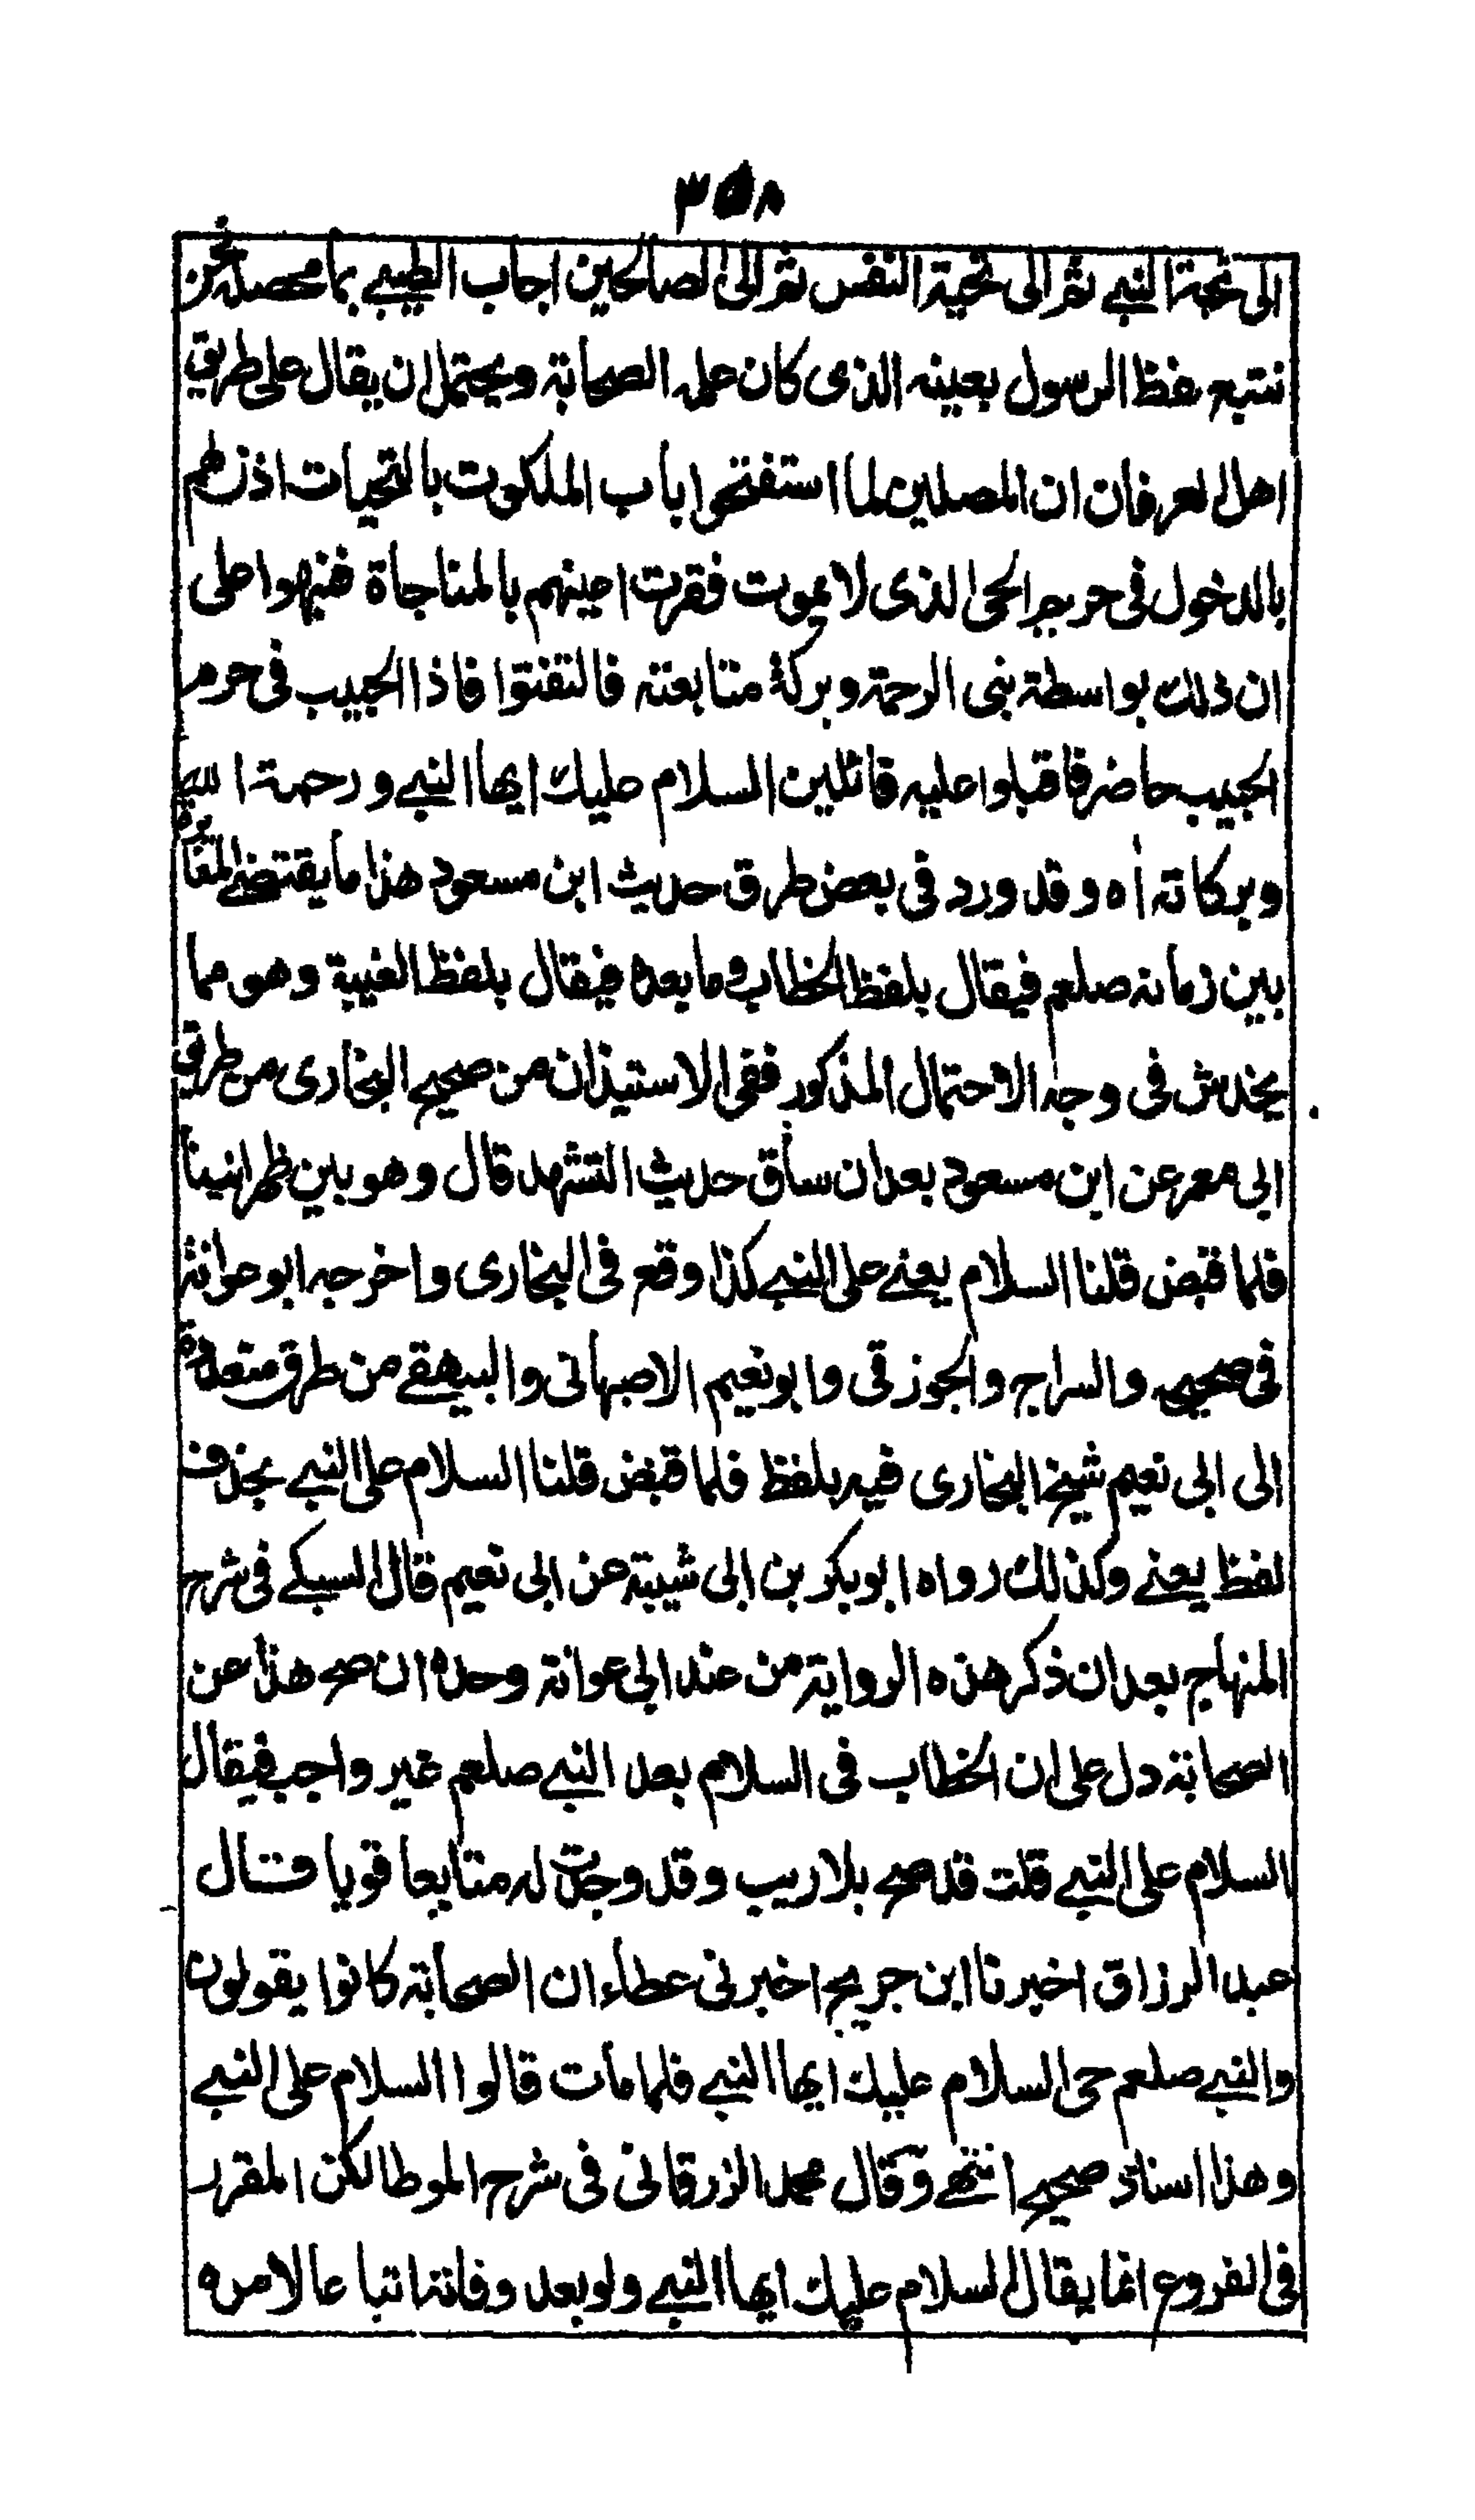 ٣٥٨
الى تحية النبي ثم الى تحية النفس ثم الى الصالحين اجاب الطيبي بما محصله نحن
نتبع لفظ الرسول بعينه الذى كان علمه الصحابة ويحتمل ان يقال على طريق
اهل العرفان ان المصلين لما استفتحوا باب الملكوت بالتحيات اذن لهم
بالدخول فى حريم الحى الذى لا يموت فقرت اعينهم بالمناجاة فنبهوا على
ان ذلك بواسطة نبى الرحمة وبركة متابعته فالتفتوا فاذا الحبيب فى حرم
الحبيب حاضر فاقبلوا عليه قائلين السلام عليك ايها النبي ورحمة الله
وبركاته اه وقد ورد فى بعض طرق حديث ابن مسعود هذا ما يقتضى المغايرة
بين زمانه صلعم فيقال بلفظ الخطاب وما بعده فيقال بلفظ الغيبة وهو مما
يخدش فى وجه الاحتمال المذكور ففى الاستيذان من صحيح البخارى من طريق
ابى معمر عن ابن مسعود بعد ان ساق حديث التشهد قال وهو بين ظهرانينا
فلما قبض قلنا السلام يعني على النبي كذا وقع فى البخارى واخرجه ابو عوانة
فى صحيحه والسراج والجوزقى وابو نعيم الاصبهانى والبيهقي من طرق متعددة
الى ابى نعيم شيخ البخارى فيه بلفظ فلما قبض قلنا السلام على النبي بحذف
لفظ يعني وكذلك رواه ابو بكر بن ابى شيبة عن ابى نعيم قال السبكي فى شرح
المنهاج بعد ان ذكر هذه الرواية من عند ابى عوانة وحده ان صح هذا عن
الصحابة دل على ان الخطاب فى السلام بعد النبي صلعم غير واجب فيقال
السلام على النبي قلت قد صح بلا ريب وقد وجدت له متابعا قويا قال
عبد الرزاق اخبرنا ابن جريج اخبرنى عطاء ان الصحابة كانوا يقولون
والنبي صلعم حى السلام عليك ايها النبي فلما مات قالوا السلام على النبي
وهذا اسناد صحيح انتهى وقال محمد الزرقانى فى شرح الموطا لكن المقرر
فى الفروع انما يقال السلام عليك ايها النبي ولو بعد وفاته اتباعا لامره